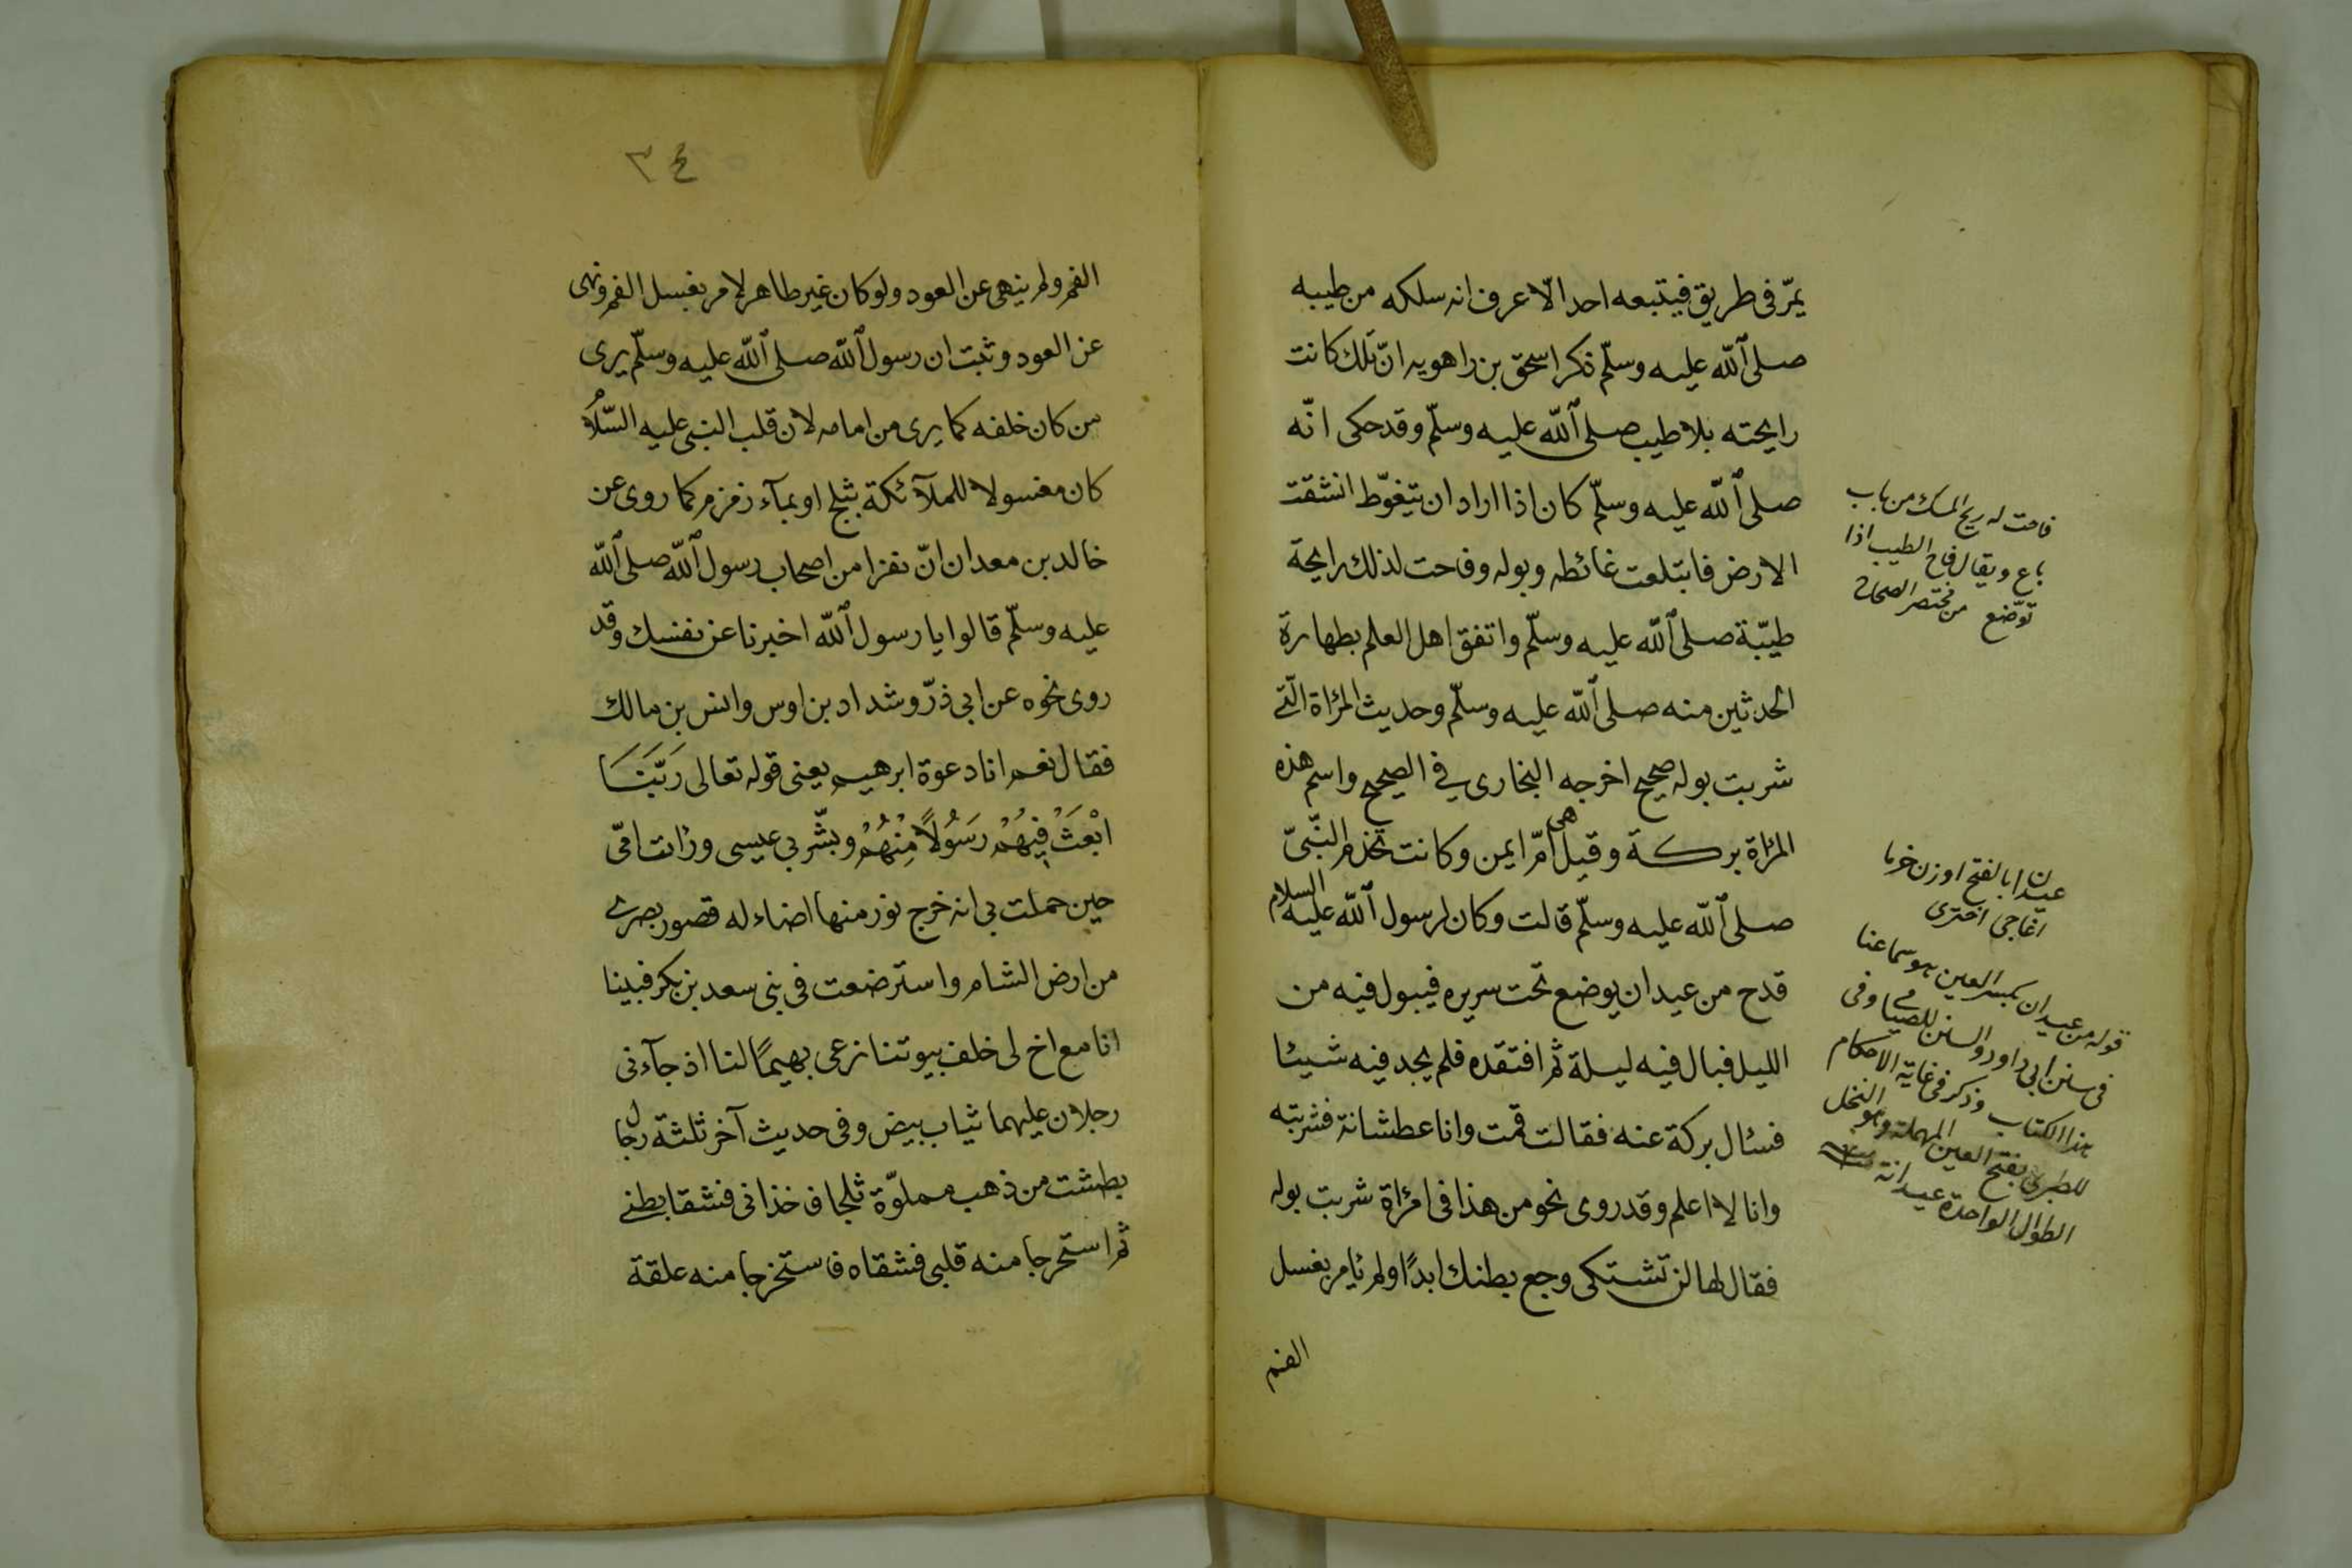 يمرّ فى طريق فيتبعه احد الّا عرف انه سلكه من طيبه
صلى الله عليه وسلّم ذكر اسحق بن راهويه انّ تلك كانت
رايحته بلا طيب صلى الله عليه وسلّم وقد حكى انّه
صلى الله عليه وسلّم كان اذا اراد ان يتغوّط انشقت
الارض فابتلعت غائطه وبوله وفاحت لذلك رايحة
طيّبة صلى الله عليه وسلّم واتفق اهل العلم بطهارة
الحدثين منه صلى الله عليه وسلّم وحديث المرٔاة الّتى
شربت بوله صحيح اخرجه البخارى فى الصحيح واسم هذه
المرٔاة بركة وقيل هى امّ ايمن وكانت تخدم النّبىّ
صلى الله عليه وسلّم قالت وكان لرسول الله عليه السلام
قدح من عيدان يوضع تحت سريره فيبول فيه من
الليل فبال فيه ليلة ثم افتقده فلم يجد فيه شيئا
فسئال بركة عنه فقالت قمت وانا عطشانة فشربته
وانا لا اعلم وقد روى نحو من هذا فى امرٔاة شربت بوله
فقال لها لن تشتكى وجع بطنك ابدًا ولم ئامر بغسل
الفم
فاحت له ريح المسك من باب
باع ويقال فاح الطيب اذا
توضّع من مختصر الصحاح
عيدان بالفتح اوزن خرما
اغاجى اخترى
قوله من عيدان بكسر العين هو سماعنا
فى سنن ابى داود والسنن للضيا وفى
هذا الكتاب وذكر فى غاية الاحكام
للطبرى بفتح العين المهملة وهو النخل
الطوال الواحدة عيدانة
٣٤
الفم ولم ينهى عن العود ولو كان غير طاهر لامر بغسل الفم ونهى
عن العود وثبت ان رسول الله صلى الله عليه وسلّم يرى
من كان خلفه كما يرى من امامه لان قلب النبى عليه السّلام
كان مغسولا للملآئكة بثلج او بمآء زمزم كما روى عن
خالد بن معدان انّ نفرا من اصحاب رسول الله صلى الله
عليه وسلّم قالوا يا رسول الله اخبرنا عن نفسك وقد
روى نحوه عن ابى ذرّ وشداد بن اوس وانس بن مالك
فقال نعم انا دعوة ابرهيم يعنى قوله تعالى رَبَّنَا
ابْعَثْ فِيهُمْ رَسُولًا مِنْهُمْ وبشّر بى عيسى ورٔات امّى
حين حملت بى انه خرج نور منها اضاء له قصور بصرى
من ارض الشام واسترضعت فى بنى سعد بن بكر فبينا
انا مع اخ لى خلف بيوتنا نرعى بهيمًا لنا اذ جآءنى
رجلان عليهما ثياب بيض وفى حديث آخر ثلثة رجال
بطشت من ذهب مملوّة ثلجا فاخذانى فشقا بطنى
ثم استخرجا منه قلبى فشقاه فاستخرجا منه علقة